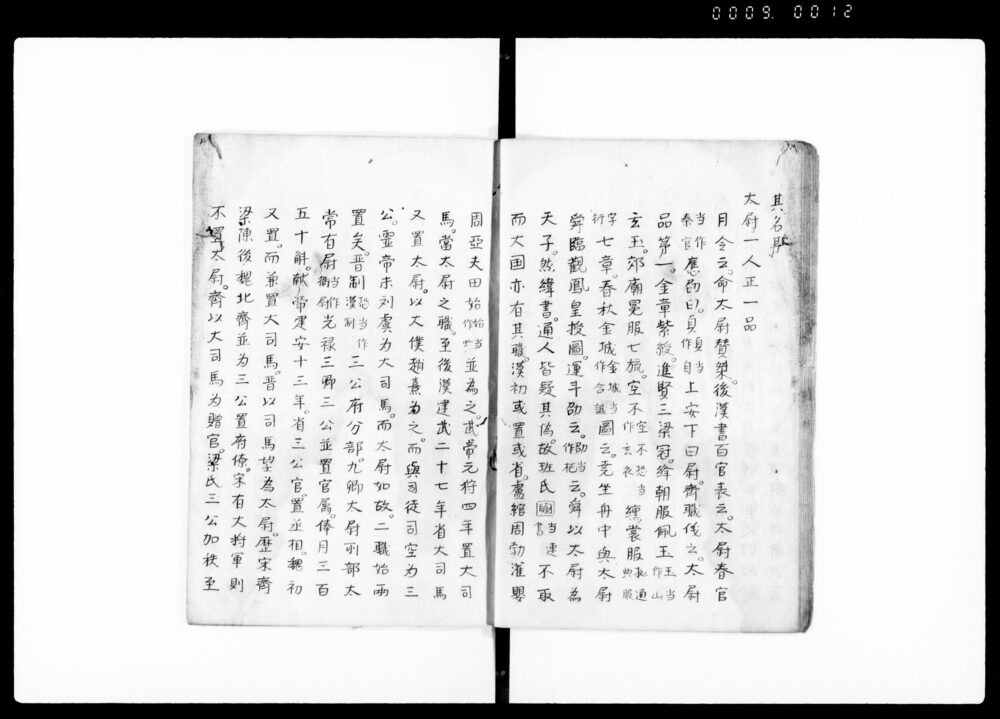 0009. 0012
其名
太尉一人正一品
月令云。命太尉賛桀。後漢書百官表云。太尉春官
當作秦官應劭曰。自上安下曰尉。齊職儀云。太尉
品第一。金章紫綬。進賢三梁冠。絳朝服。佩玉當作山
玄玉。郊廟冕服七旒。空不恐當作玄衣纁裳服
七章。春秋金城金城當作合誠圖云。堯坐舟中與太尉
舜臨觀鳳皇授圖。運斗劭云。劭當作樞云。舜以太尉為
天子。然緯書。通人皆疑其偽。故班氏國書不取
而大国亦有其職。漢初或置或省。盧綰周勃灌嬰
周亞夫田始並為之。武帝元狩四年置大司
馬。當太尉之職。至後漢建武二十七年省大司馬
又置太尉。以大僕趙憙為之。而與司徒司空為三
公。霊帝末刘虞为大司馬。而太尉如故。二職始兩
置矣。晋制恐當作漢制三公府分部九卿大尉所部太
常有尉當作衛尉光禄三卿三公並置官属。俸月三百
五十斛。献帝建安十三年。省三公官。置丞相。魏初
又置。而兼置大司馬。晋以司馬望為太尉。歴宋齊
梁陳後魏北齊並为三公置府僚。宋有大将軍則
不置太尉。齊以大司馬为贈官。梁氏三公加秩至